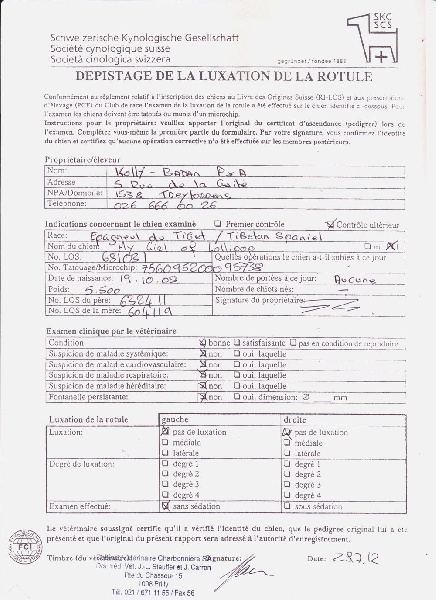 SKG
SCS
Schweizerische Kynologische Gesellschaft
Société cynologique suisse
Società cinologica svizzera
gegründet/fondée 1883
DEPISTAGE DE LA LUXATION DE LA ROTULE
Conformément au règlement relatif à l'inscription des chiens au Livre des Origines Suisse (RI-LOS) et aux prescriptions
d'élevage (PCE) du Club de race l'examen de la luxation de la rotule a été effectué sur le chien identifié ci-dessous. Pour
l'examen les chiens doivent être tatoués ou munis d'un microchip.
Instructions pour le propriétaire: veuillez apporter l'original du certificat d'ascendance (pedigree) lors de
l'examen. Complétez vous-même la première partie du formulaire. Par votre signature, vous confirmez l'identité
du chien et certifiez qu'aucune opération corrective n'a été effectuée sur les membres postérieurs.
Propriétaire/éleveur
Nom: Kolly - Badan P & A
Adresse 5 Rue de la
NPA/Domicile: 1538 Treytorrens
Téléphone: 026 666 60 26
Indications concernant le chien examiné ☐ Premier contrôle ☒ Contrôle ultérieur
Race: Epagneul du Tibet / Tibetan Spaniel
Nom du chien: My Girl of Lollipop ☐ m ☒ f
No. LOS: 681081 Quelles opérations le chien a-t-il subies à ce jour
No. Tatouage/Microchip: 756095200095738
Date de naissance: 19.10.08 Nombre de portées à ce jour: Aucune
Poids: 5.500 Nombre de chiots nés: —
No. LOS du père: 632411 Signature du propriétaire:
No. LOS de la mère: 604119
Examen clinique par le vétérinaire
Condition ☒ bonne ☐ satisfaisante ☐ pas en condition de reproduire
Suspicion de maladie systémique: ☒ non ☐ oui, laquelle
Suspicion de maladie cardiovasculaire: ☒ non ☐ oui, laquelle
Suspicion de maladie respiratoire: ☒ non ☐ oui, laquelle
Suspicion de maladie héréditaire: ☒ non ☐ oui, laquelle
Fontanelle persistante: ☒ non ☐ oui, dimension: Ø mm
Luxation de la rotule gauche droite
Luxation: ☒ pas de luxation ☒ pas de luxation
☐ médiale ☐ médiale
☐ latérale ☐ latérale
Degré de luxation: ☐ degré 1 ☐ degré 1
☐ degré 2 ☐ degré 2
☐ degré 3 ☐ degré 3
☐ degré 4 ☐ degré 4
Examen effectué: ☒ sans sédation ☐ sous sédation
Le vétérinaire soussigné certifie qu'il a vérifié l'identité du chien, que le pedigree original lui a été
présenté et que l'original du présent rapport sera adressé à l'autorité d'enregistrement.
FCI
Timbre (du vétérinaire): Signature: Date: 28.7.12
Vétérinaire Charbonnières SA
Doc. méd. Vet. J.-L. Stauffer et J. Carron
Rte du Chasseur 15
1008 Prilly
Tél. 021 / 671 11 55 / Fax 56